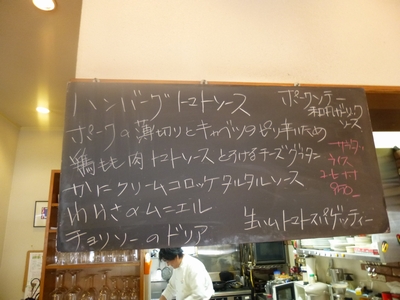 ハンバーグトマトソース
ポークの薄切りとキャベツのピリ辛いため
鶏もも肉 トマトソース とろけるチーズグラタン
かにクリームコロッケタルタルソース
チョリソーのドリア
ポークソテー
和風ガーリック
ソース
サラダ
ライス
コーヒー付
生ハムトマトスパゲッティー